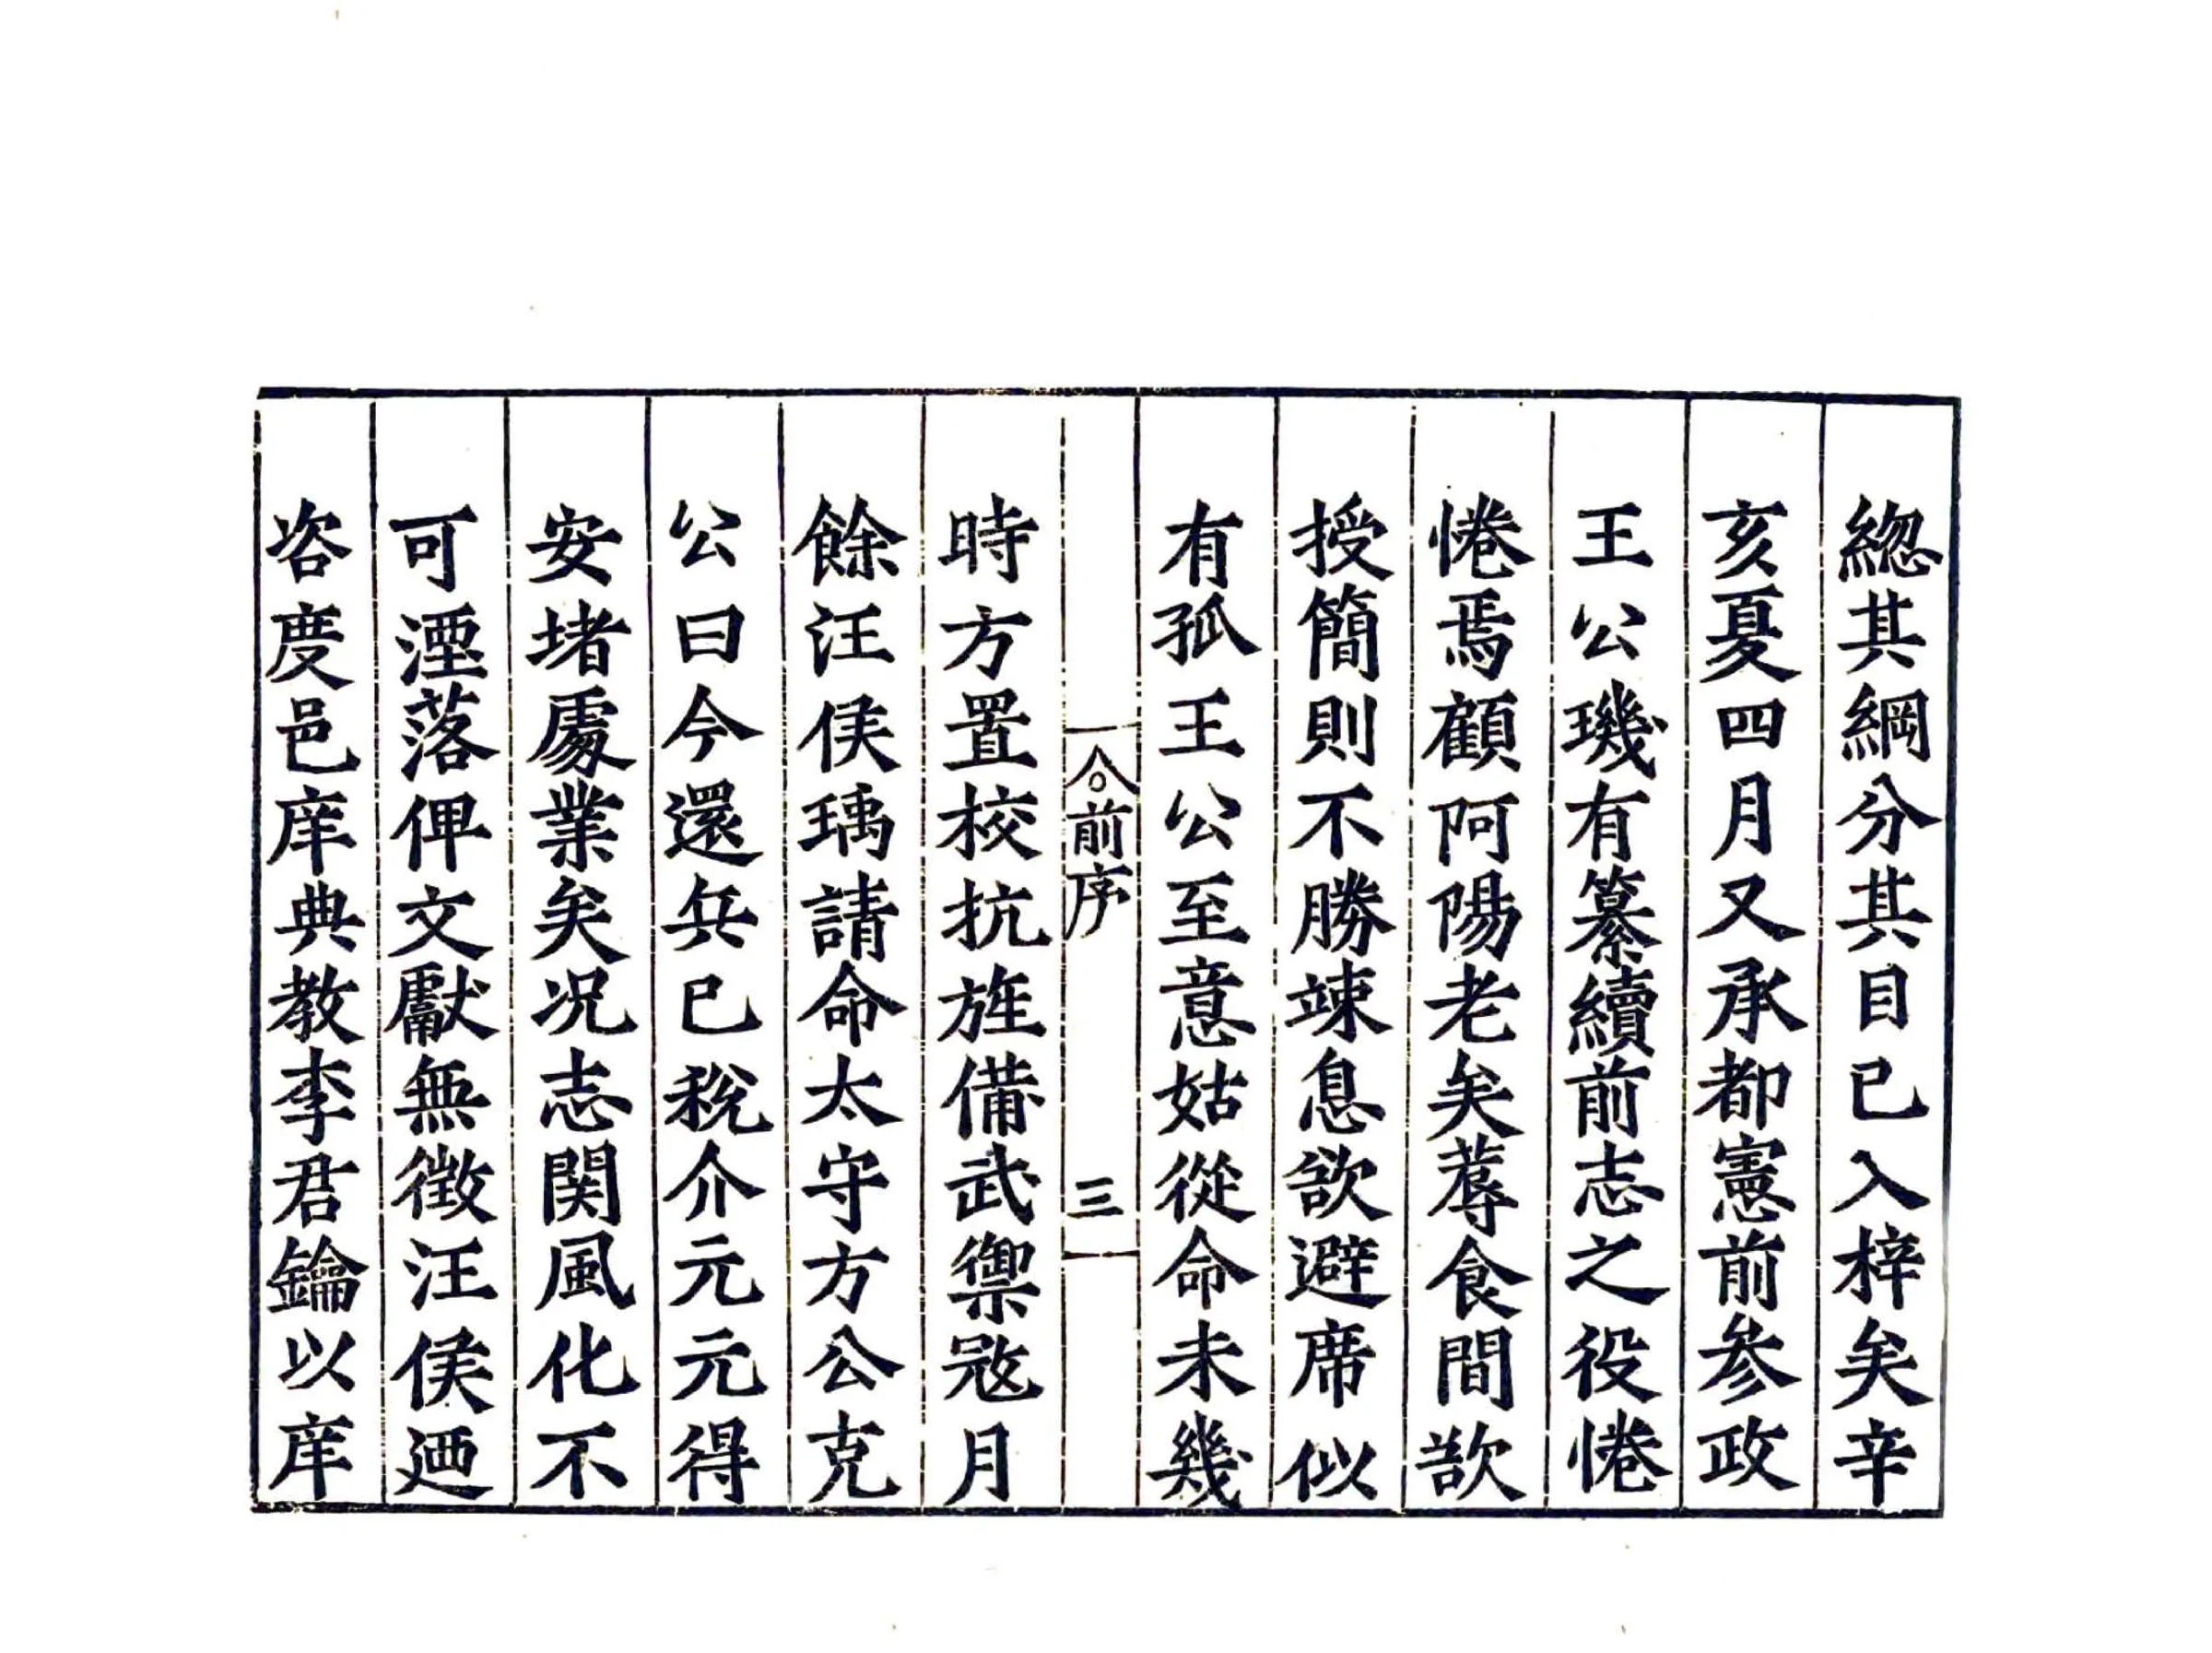 緫其綱分其目已入梓矣辛
亥夏四月又承都憲前參政
王公璣有纂續前志之役惓
惓焉顧阿陽老矣蓐食間欲
授簡則不勝竦息欲避席似
有孤王公至意姑從命未幾
前序 三
時方置校抗旌備武禦寇月
餘汪侯瑀請命太守方公克
公曰今還兵已稅介元元得
安堵處業矣况志関風化不
可湮落俾文獻無徵汪侯廼
咨度邑庠典教李君鑰以庠